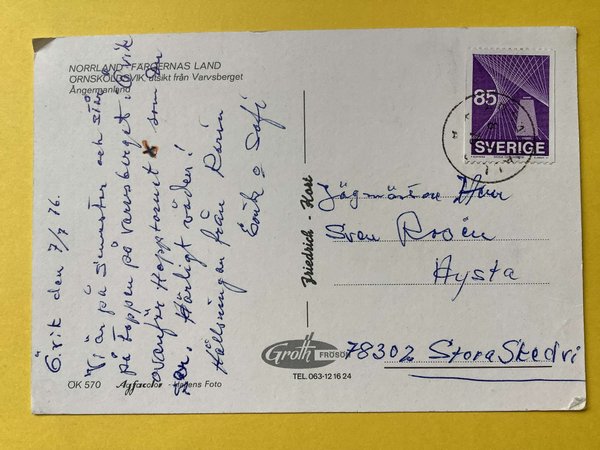 NORRLAND - FÄRGERNAS LAND
ÖRNSKÖLDSVIK, utsikt från Varvsberget
Ångermanland
Ö.vik den 7/7 76.
Vi är på semester och sitter
på toppen på varvsberget i Ö.vik
ovanför Hopptornet x som du
ser. Härligt väder!
Hälsningar från Karin
Erik o Sofi
Friedrich - Kort
85
SVERIGE
Jägmästare Herr
Sven Rosén
Hysta
78302 Stora Skedvi
Groth FRÖSÖN
TEL. 063-12 16 24
ÖK 570 Agfacolor - Hagens Foto